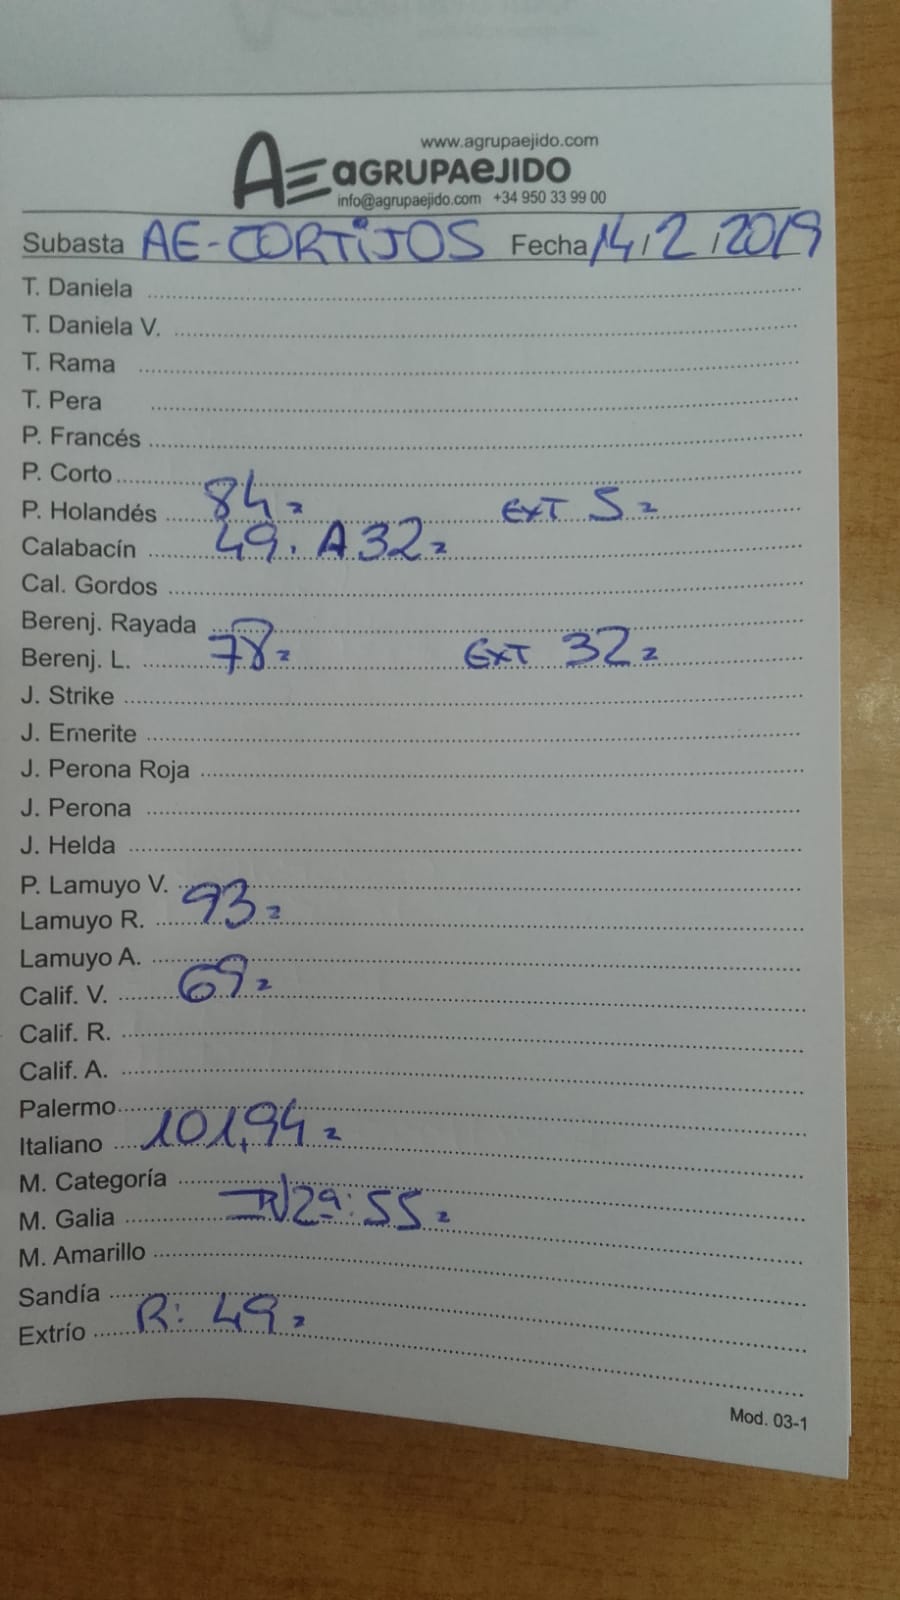 www.agrupaejido.com
AE AGRUPAEJIDO
info@agrupaejido.com +34 950 33 99 00
Subasta AE-CORTIJOS Fecha 14/2/2019
T. Daniela
T. Daniela V.
T. Rama
T. Pera
P. Francés
P. Corto
P. Holandés 84= EXT 5=
Calabacín 49, A 32=
Cal. Gordos
Berenj. Rayada
Berenj. L. 78= EXT 32=
J. Strike
J. Emerite
J. Perona Roja
J. Perona
J. Helda
P. Lamuyo V.
Lamuyo R. 93=
Lamuyo A.
Calif. V. 69=
Calif. R.
Calif. A.
Palermo
Italiano 101,94=
M. Categoría
M. Galia 29: 55=
M. Amarillo
Sandía
Extrío R: 49=
Mod. 03-1